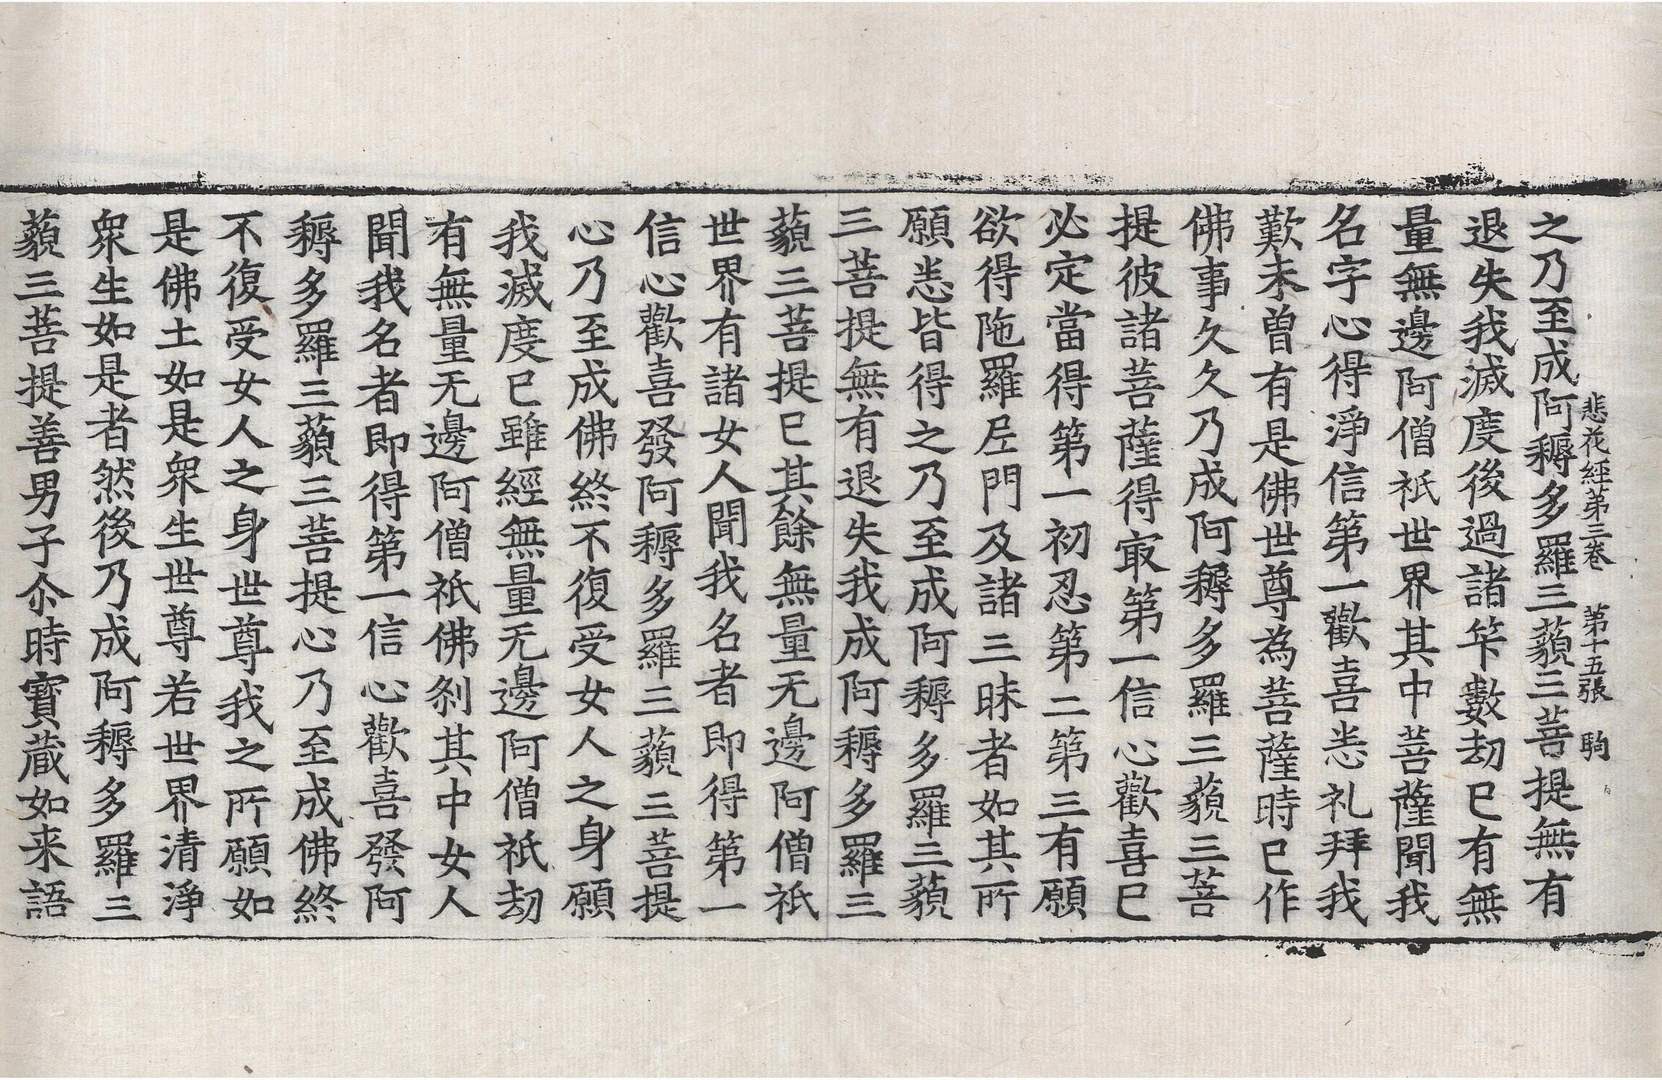 悲花經第三卷　第十五張　駒
之乃至成阿耨多羅三藐三菩提無有
退失我滅度後過諸筭數劫已有無
量無邊阿僧祇世界其中菩薩聞我
名字心得淨信第一歡喜悉礼拜我
歎未曾有是佛世尊為菩薩時已作
佛事久久乃成阿耨多羅三藐三菩
提彼諸菩薩得㝡第一信心歡喜已
必定當得第一初忍第二第三有願
欲得陁羅尼門及諸三昧者如其所
願悉皆得之乃至成阿耨多羅三藐
三菩提無有退失我成阿耨多羅三
藐三菩提已其餘無量无邊阿僧祇
世界有諸女人聞我名者即得第一
信心歡喜發阿耨多羅三藐三菩提
心乃至成佛終不復受女人之身願
我滅度已雖經無量无邊阿僧祇劫
有無量无邊阿僧祇佛刹其中女人
聞我名者即得第一信心歡喜發阿
耨多羅三藐三菩提心乃至成佛終
不復受女人之身世尊我之所願如
是佛土如是衆生世尊若世界清淨
衆生如是者然後乃成阿耨多羅三
藐三菩提善男子尒時寶蔵如来語